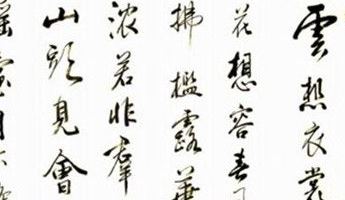 雲想衣裳
花想容春
拂檻露華
濃若非羣
山頭見會